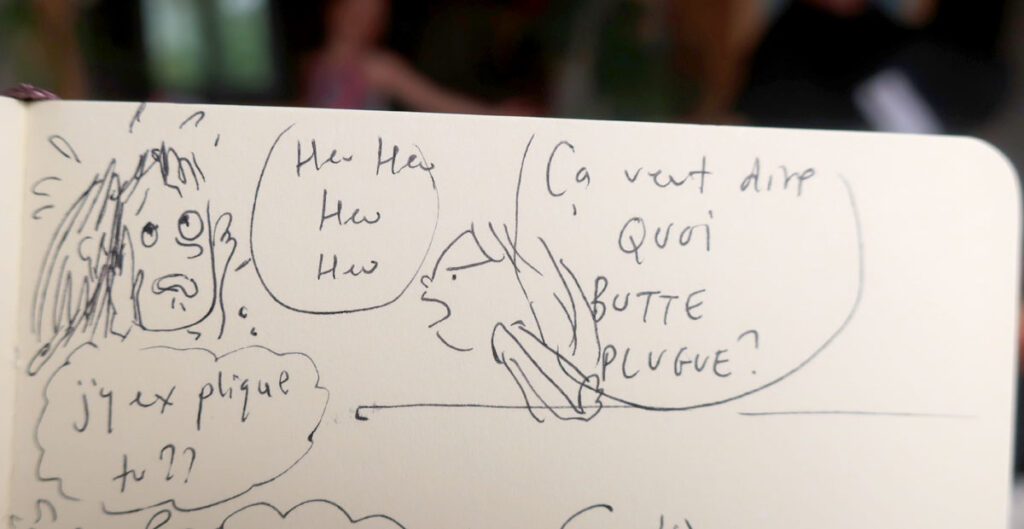 Heu Heu
Heu
Heu
Ça veut dire
QUOI
BUTTE
PLUGUE?
j'y explique
tu??